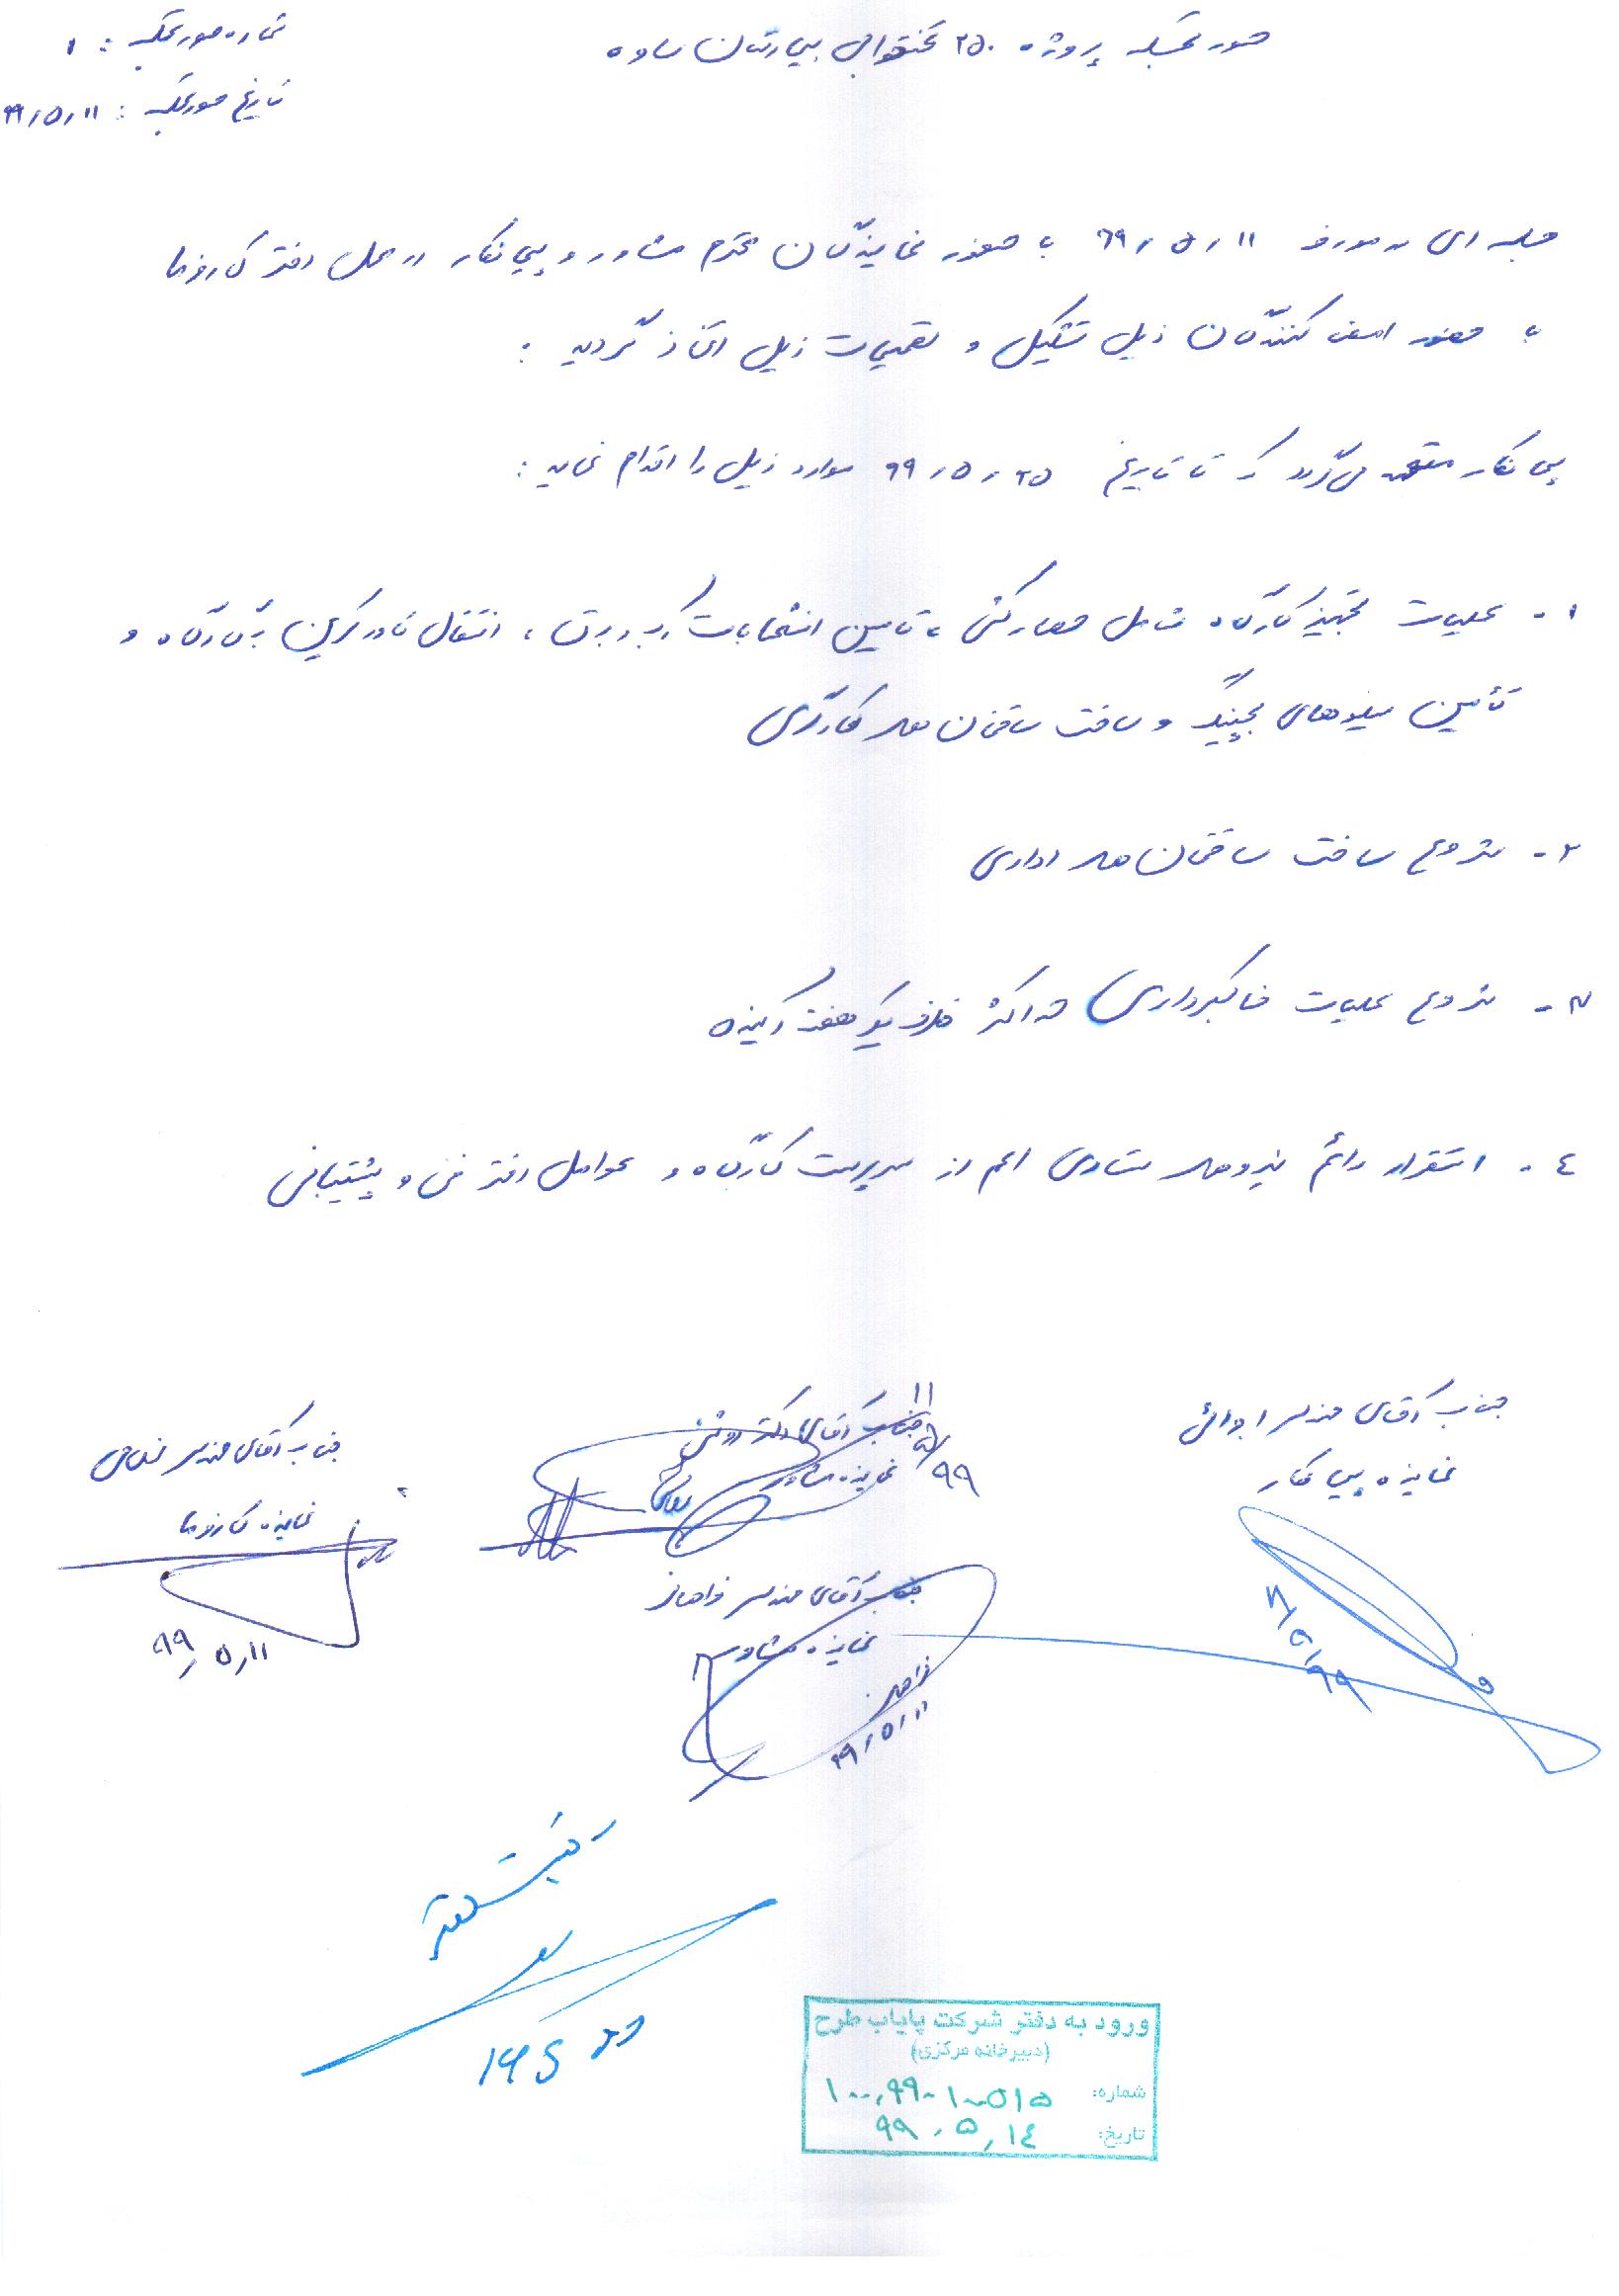 صورتجلسه پروژه ۲۵۰ تختخوابی بیمارستان ساوه
شماره صورتجلسه : ۱
تاریخ صورتجلسه : ۹۹/۵/۱۱
جلسه ای در مورخ ۹۹/۵/۱۱ با حضور نمایندگان محترم مشاور و پیمانکار در محل دفتر کارفرما
با حضور امضا کنندگان ذیل تشکیل و تصمیمات ذیل اتخاذ گردید :
پیمانکار متعهد می گردد که تا تاریخ ۹۹/۵/۲۵ موارد ذیل را اقدام نماید :
۱- عملیات تجهیز کارگاه شامل حصارکشی ، تامین انشعابات آب و برق ، انتقال تاورکرین به کارگاه و
تأمین سیلوهای بچینگ و ساخت ساختمان های کارگری
۲- شروع ساخت ساختمان های اداری
۳- شروع عملیات خاکبرداری حداکثر ظرف یک هفته آینده
٤- استقرار دائم نیروهای ستادی اعم از سرپرست کارگاه و عوامل دفتر فنی و پشتیبانی
جناب آقای مهندس
نماینده پیمانکار
۹۹/۵/۱۱
جناب آقای دکتر
نماینده مشاور
۹۹/۵/۱۱
جناب آقای مهندس
نماینده کارفرما
۹۹/۵/۱۱
جناب آقای مهندس
نماینده مشاور
۹۹/۵/۱۱
ورود به دفتر شرکت پایاب طرح
(دبیرخانه مرکزی)
شماره:
تاریخ: ۹۹/۵/۱٤